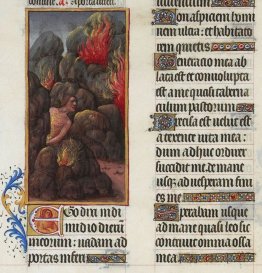 Ego dixi in di
midio dierum
meorum: uadam ad
portas inferi
Non aspiciam homi
nem ultra: et habitato
rem quietis
Generatio mea ab
lata est et conuoluta
est a me quasi taberna
culum pastorum
Precisa est uelut
a texente uita mea:
dum adhuc ordirer
succidit me de mane
usq ad uesperam fini
es me
Sperabam usque
ad mane quasi leo sic
contriuit omnia ossa
mea